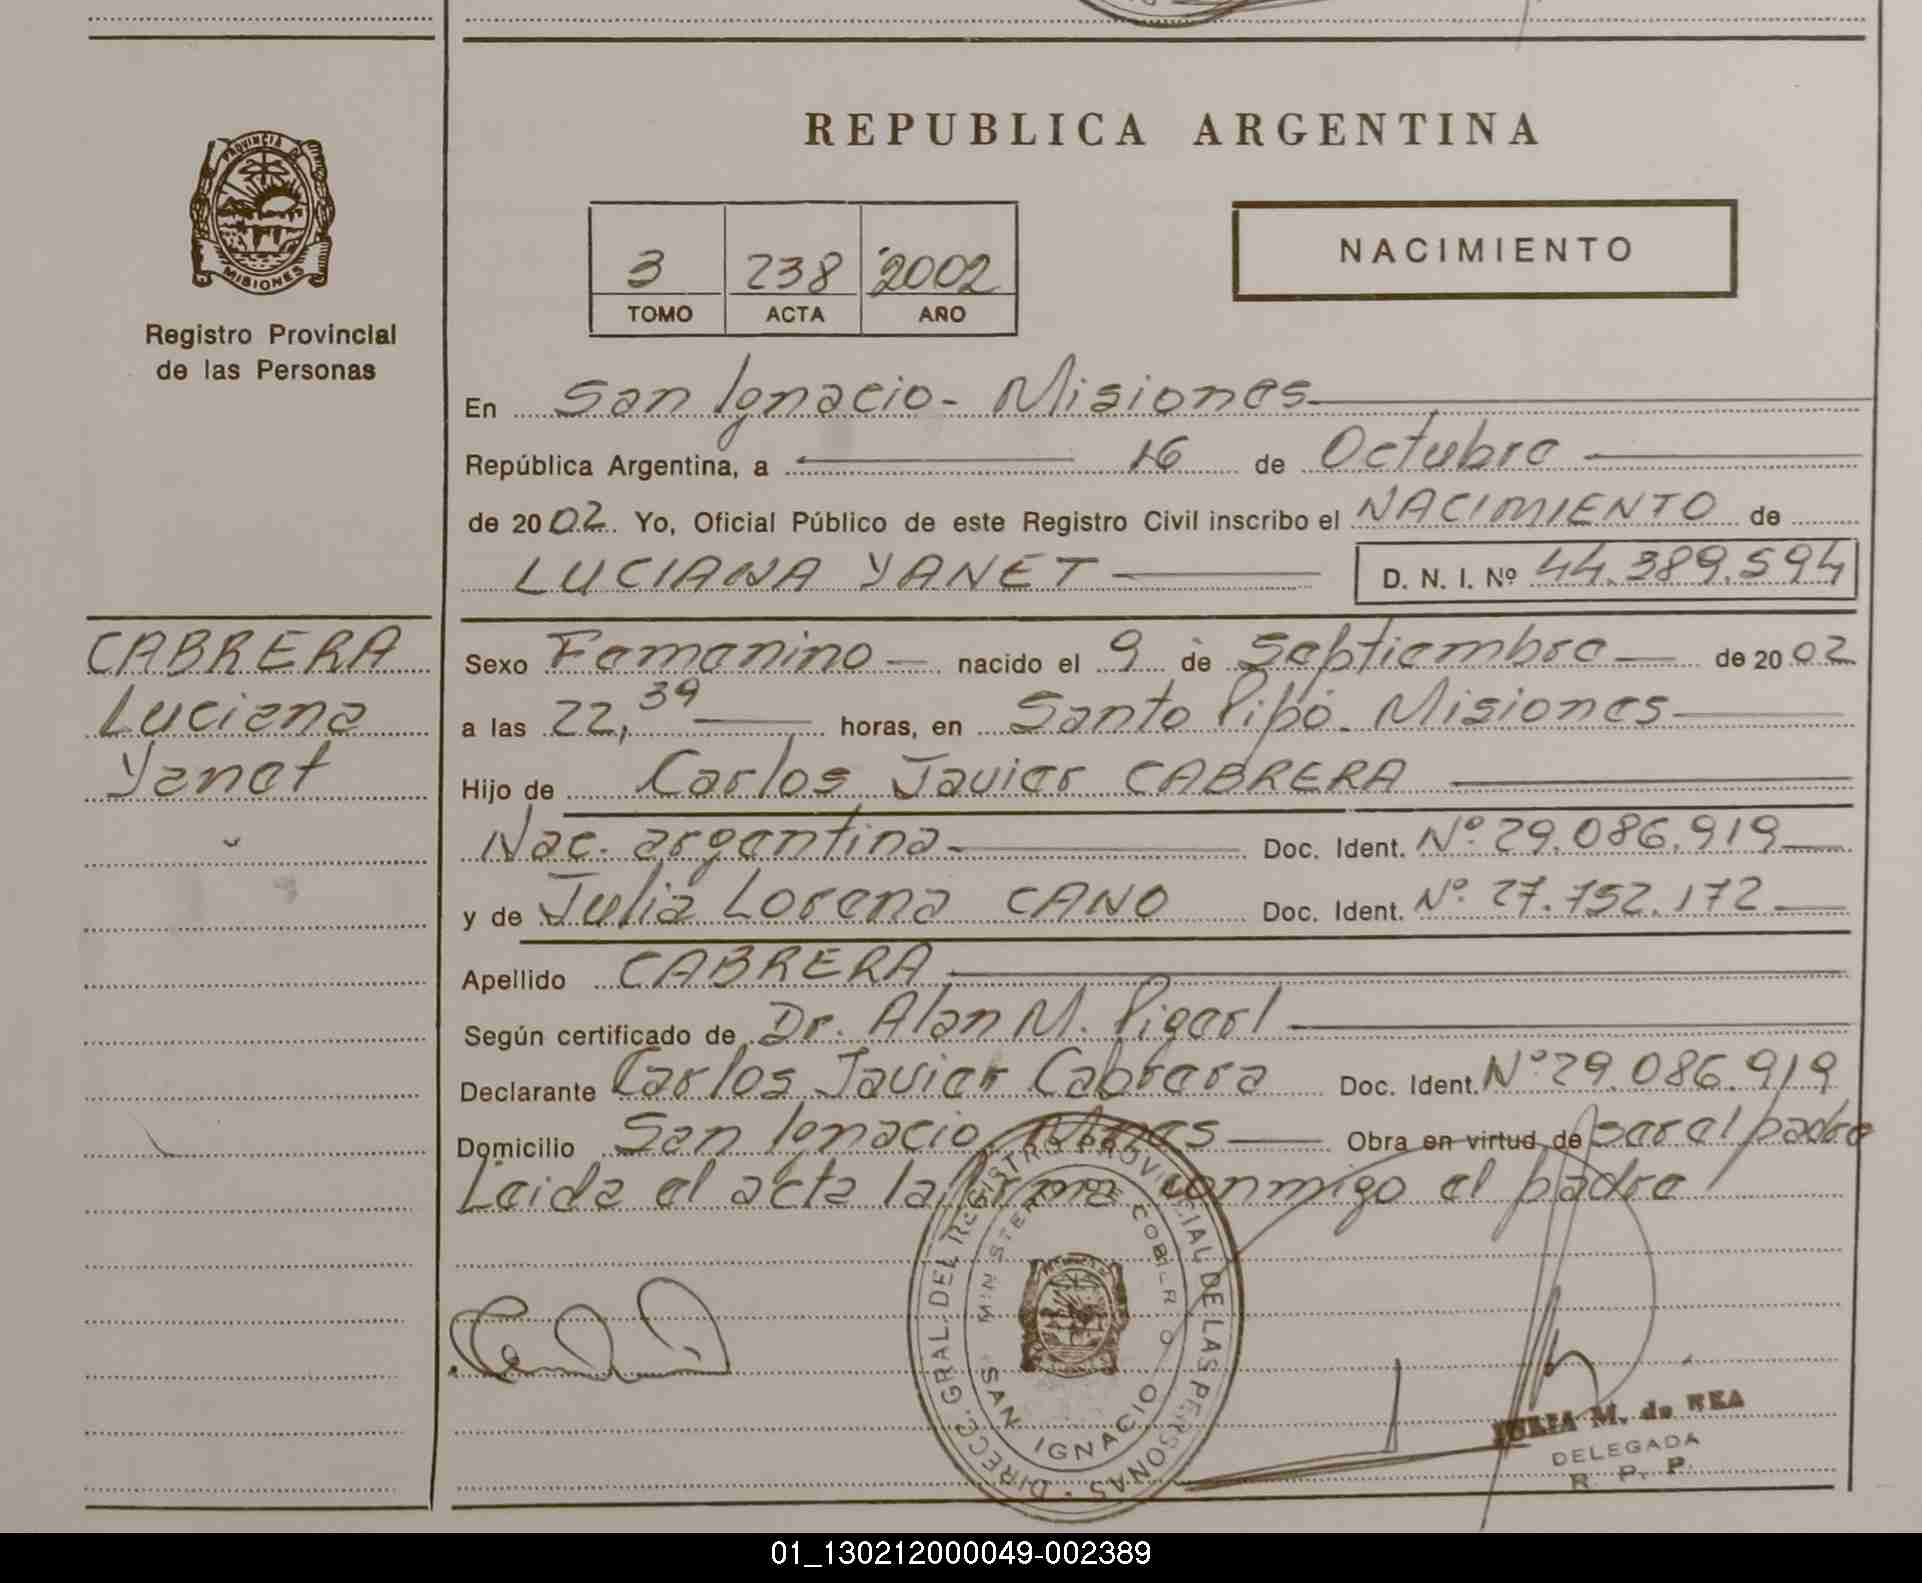 REPUBLICA ARGENTINA
PROVINCIA DE
MISIONES
Registro Provincial
de las Personas
3 238 2002
TOMO ACTA AÑO
NACIMIENTO
En San Ignacio - Misiones
República Argentina, a 16 de Octubre
de 2002. Yo, Oficial Público de este Registro Civil inscribo el NACIMIENTO de
LUCIANA YANET D. N. I. Nº 44.389.594
CABRERA
Luciana
Yanet
Sexo Femenino nacido el 9 de Septiembre de 2002
a las 22,39 horas, en Santo Pipó - Misiones
Hijo de Carlos Javier CABRERA
Nac. argentina Doc. Ident. Nº 29.086.919
y de Julia Lorena CANO Doc. Ident. Nº 27.752.172
Apellido CABRERA
Según certificado de Dr. Alan M.
Declarante Carlos Javier Cabrera Doc. Ident. Nº 29.086.919
Domicilio San Ignacio Mnes Obra en virtud de ser el padre
Leida el acta la firma conmigo el padre
DIRECC. GRAL. DEL REGISTRO PROVINCIAL DE LAS PERSONAS
MINISTERIO DE GOBIERNO
SAN IGNACIO
M. de
DELEGADA
R. P. P.
01_130212000049-002389